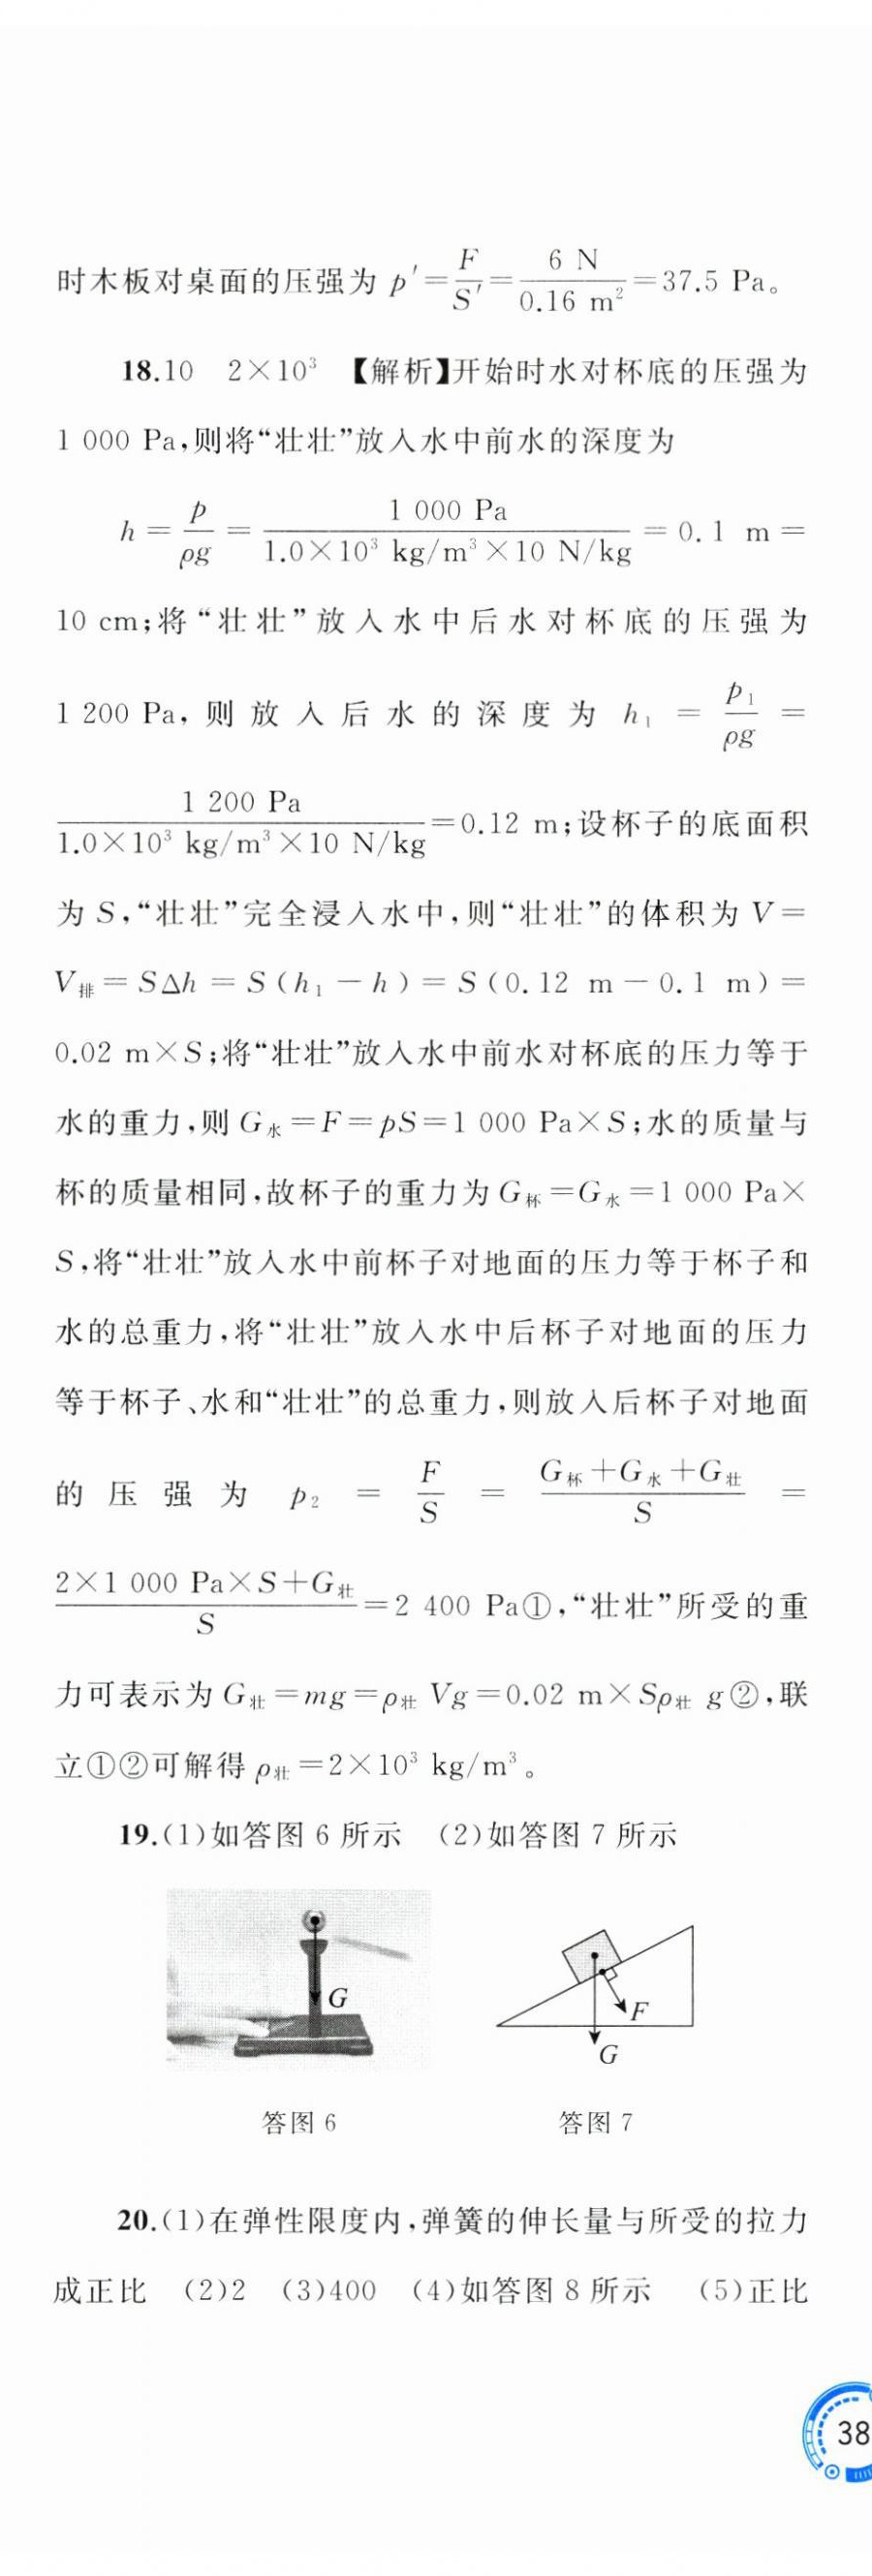 时木板对桌面的压强为 p′=F/S′=6 N/0.16 m²=37.5 Pa。
18.10　2×10³　【解析】开始时水对杯底的压强为
1 000 Pa,则将“壮壮”放入水中前水的深度为
h=p/ρg=1 000 Pa/1.0×10³ kg/m³×10 N/kg=0.1 m=
10 cm;将“壮壮”放入水中后水对杯底的压强为
1 200 Pa,则放入后水的深度为 h₁=p₁/ρg=
1 200 Pa/1.0×10³ kg/m³×10 N/kg=0.12 m;设杯子的底面积
为 S,“壮壮”完全浸入水中,则“壮壮”的体积为 V=
V排=SΔh=S(h₁-h)=S(0.12 m-0.1 m)=
0.02 m×S;将“壮壮”放入水中前水对杯底的压力等于
水的重力,则 G水=F=pS=1 000 Pa×S;水的质量与
杯的质量相同,故杯子的重力为 G杯=G水=1 000 Pa×
S,将“壮壮”放入水中前杯子对地面的压力等于杯子和
水的总重力,将“壮壮”放入水中后杯子对地面的压力
等于杯子、水和“壮壮”的总重力,则放入后杯子对地面
的压强为 p₂=F/S=G杯+G水+G壮/S=
2×1 000 Pa×S+G壮/S=2 400 Pa①,“壮壮”所受的重
力可表示为 G壮=mg=ρ壮 Vg=0.02 m×Sρ壮 g②,联
立①②可解得 ρ壮=2×10³ kg/m³。
19.(1)如答图 6 所示　(2)如答图 7 所示
G
F
G
答图 6　答图 7
20.(1)在弹性限度内,弹簧的伸长量与所受的拉力
成正比　(2)2　(3)400　(4)如答图 8 所示　(5)正比
38